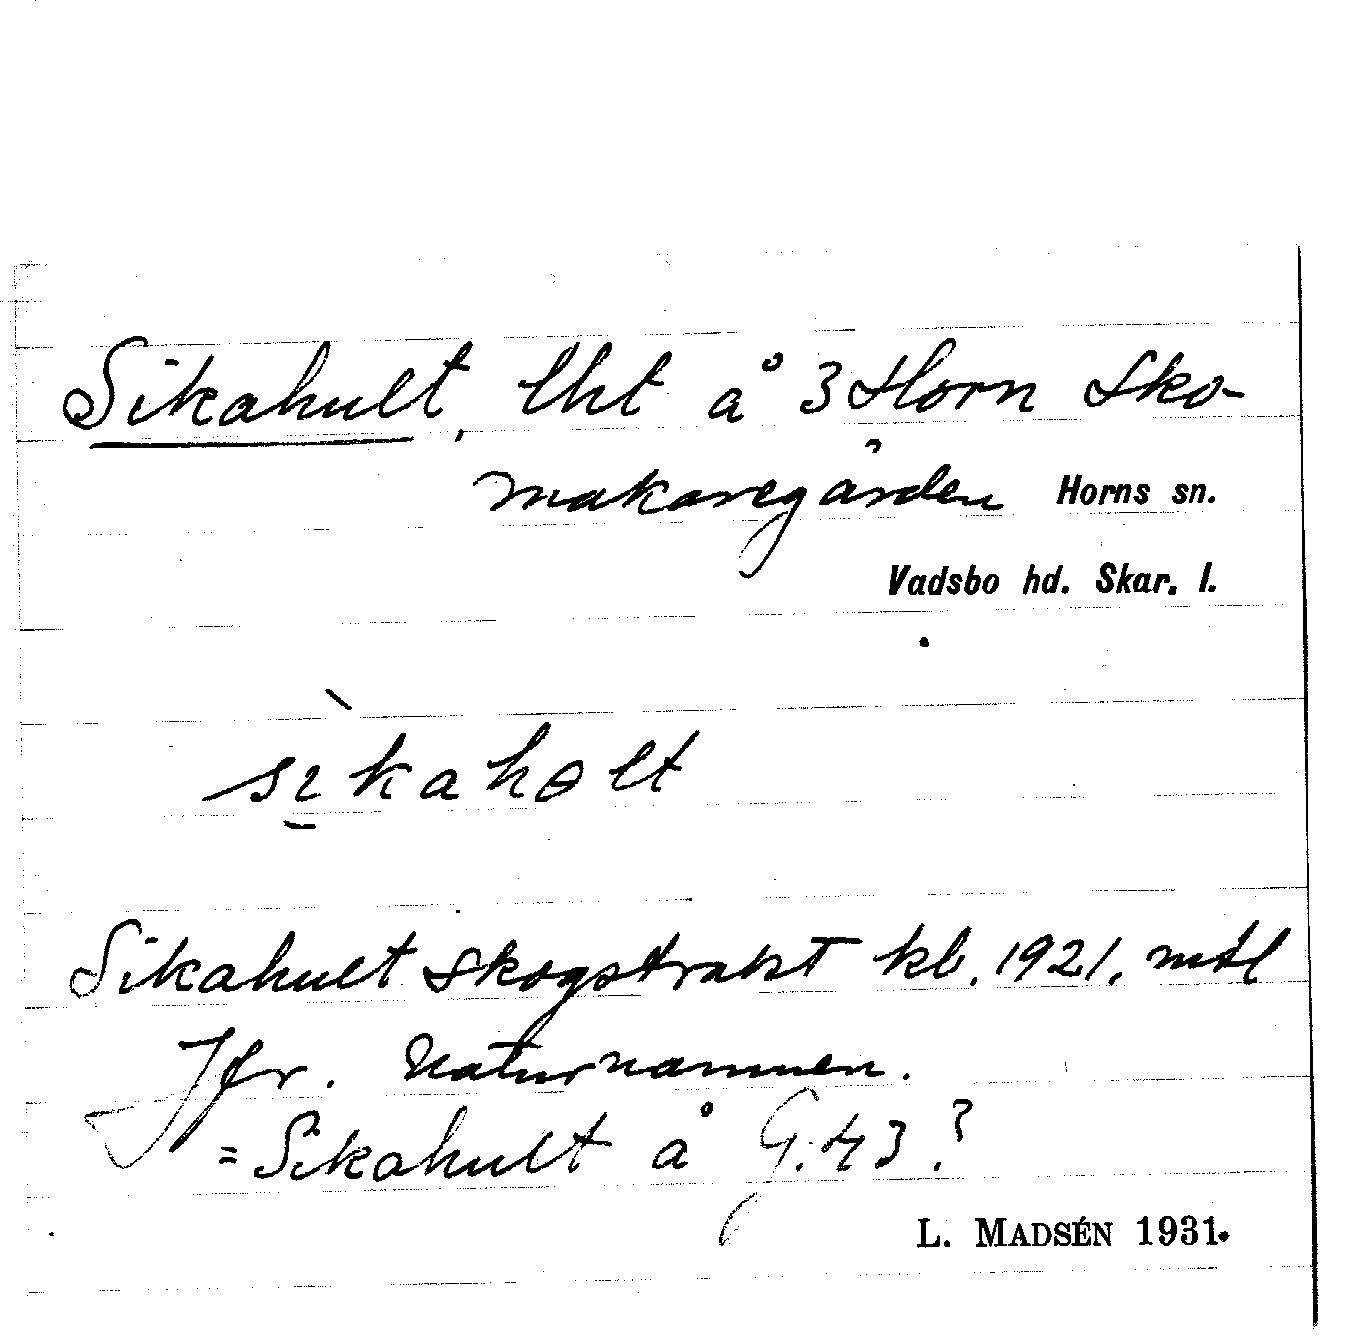 Sikahult, lht å 3 Horn Sko-
makaregården Horns sn.
Vadsbo hd. Skar. l.
sìkahɵlt
Sikahult skogstrakt kb. 1921. mtl
Jfr. Naturnamnen.
= Sikahult å G. 43.?
L. MADSÉN 1931.